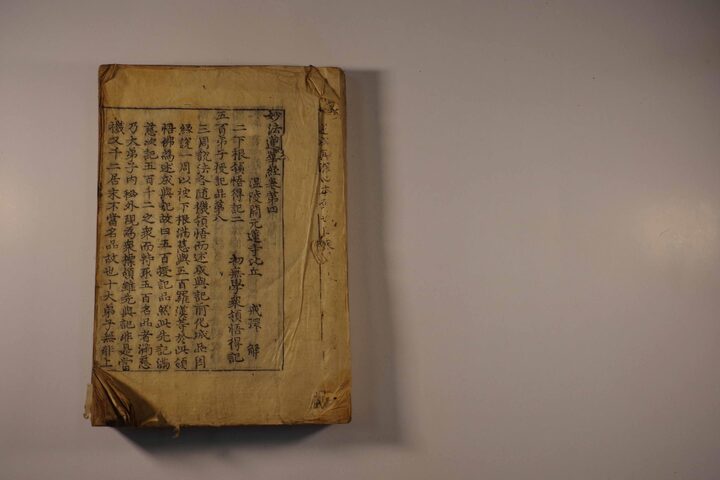 妙法蓮華經卷第四
溫陵開元蓮寺比丘 戒環 解
二下根領悟得記二 初無學衆領悟得記
五百弟子授記品第八
三周說法各隨機領悟而述成與記前化城品因
經說一周以被下根滿慈與五百羅漢等於此領
悟佛為述成與記故曰五百授記品然此先記滿
慈次記五百千二之衆而特彰五百名品者滿慈
乃大弟子內秘外現為衆標領雖先與記非是當
機又千二居末不當名品故也十大弟子無非上